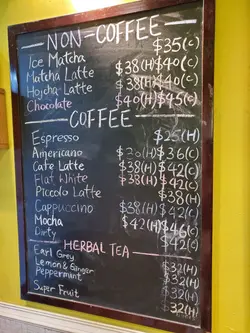 NON-COFFEE
Ice Matcha $35(C)
Matcha Latte $38(H) $40(C)
Hojicha Latte $38(H) $40(C)
Chocolate $40(H) $45(C)
COFFEE
Espresso $25(H)
Americano (H) $36(C)
Cafe Latte $38(H) $42(C)
Flat White $38(H) $42(C)
Piccolo Latte $38(H)
Cappuccino $38(H) $42(C)
Mocha $42(H) $46(C)
Dirty $42(C)
HERBAL TEA
Earl Grey $32(H)
Lemon & Ginger $32(H)
Peppermint $32(H)
Super Fruit $32(H)